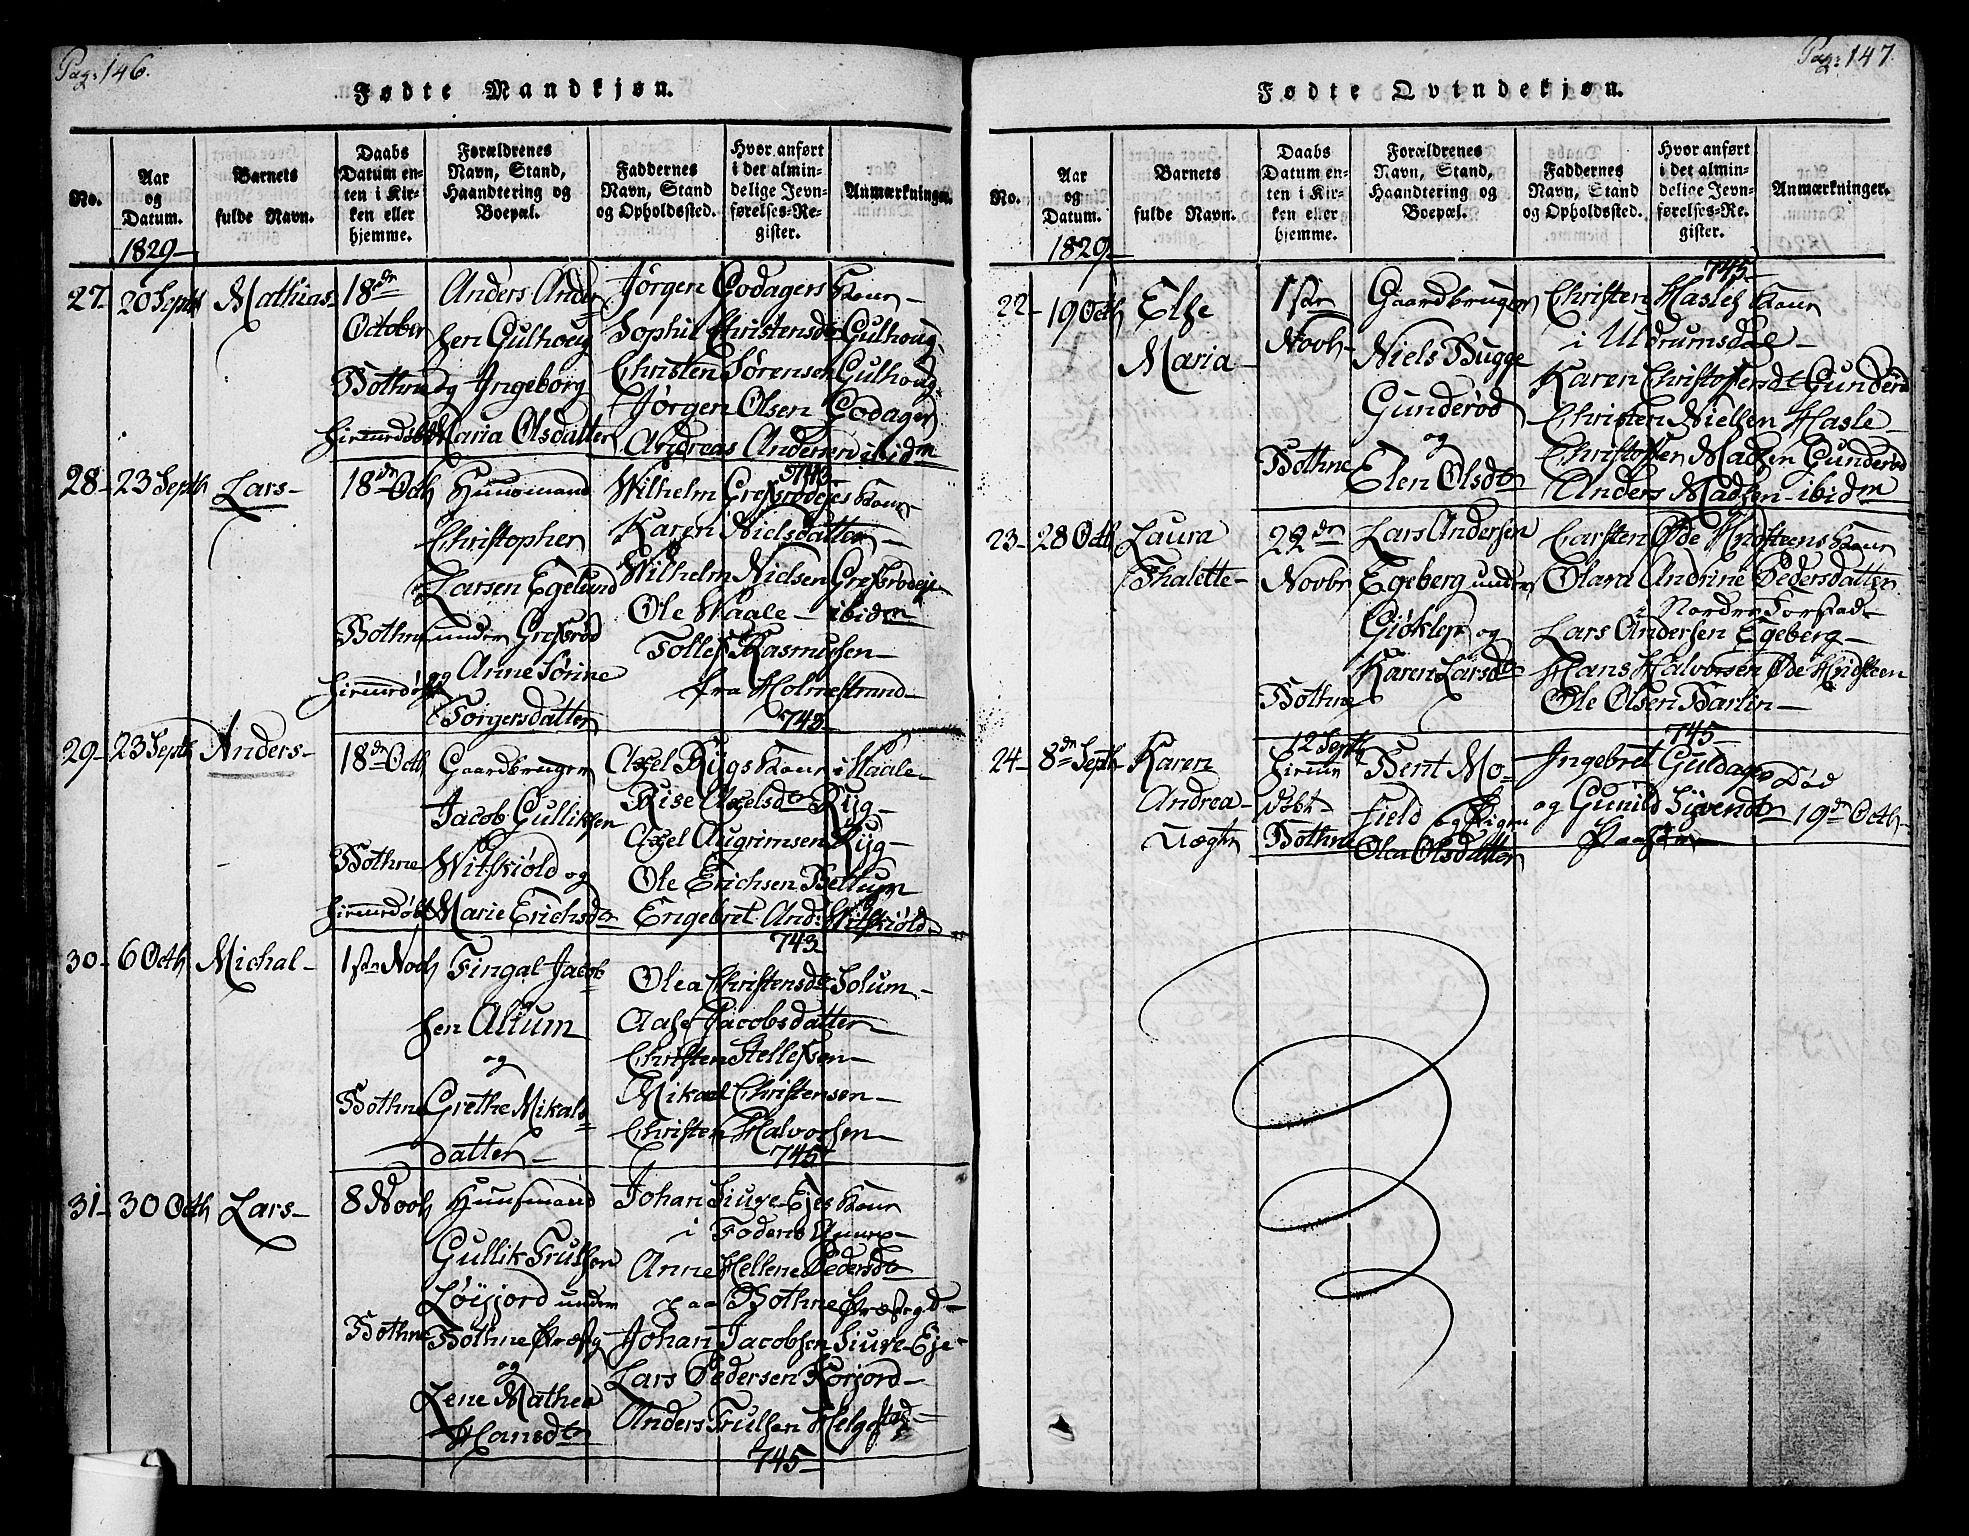 Pag: 146.
Fødte Mandkjøn.
No.
Aar og Datum.
Barnets fulde Navn.
Daabs Datum enten i Kirken eller hjemme.
Forældrenes Navn, Stand, Haandtering og Boepæl.
Faddernes Navn, Stand og Opholdssted.
Hvor anført i det almindelige Jevnførelses-Register.
Anmærkninger.
1829
27-
20 Septb
Mathias-
18de
October
Bothne
Hiemmedøbt
Anders Ander
sen Gulhoug
og Ingeborg
Maria Olsdatter
Jørgen Godagers Kone-
Sophie Christensdr Gulhoug-
Christen Sørensen Gulhoug-
Jørgen Olsen Godager
Andreas Andersen ibidm
743
28-
23 Septb
Lars-
18de Octb
Bothne
Hiemmedøbt
Huusmand
Christopher
Larsen Egelund
under Grefsrød
og Anne Sørine
Torgersdatter
Wilhelm Grefsrødejes Kone
Karen Nielsdatter-
Wilhelm Nielsen Grefsrødeje
Ole Waale- ibidm
Tollef Rasmussen-
fra Holmestrand-
743
29-
23 Septb
Anders-
18de Octb
Bothne
Hiemmedøbt
Gaardbruger
Jacob Gulliksen
Witskiøld og
Marie Erichsdr
Axel Rygs Kone i Waale-
Rise Axelsdr Ryg-
Axel Augrimsen Ryg-
Ole Erichsen Bettum
Engebret And: Witskiøld-
743
30-
6 Octb
Michal-
1ste Novb
Bothne
Fingal Jacob
sen Altum
og
Grethe Mikals
datter-
Olea Christensdr Solum-
Aase Jacobsdatter
Christen Stellefsen-
Mikael Christensen-
Christen Halvorsen-
745
31-
30 Octb
Lars-
8 Novb
Bothne
Huusmand
Gullik Trulsen
Løijord under
Bothne Præstg
og
Lene Mathea
Hansdr
Johan Siure Ejes Kone
i Foderis Annex-
Anne Hellene Pedersdr
paa Bothne Præstegd-
Johan Jacobsen Siure-Eje-
Lars Pedersen Korjord-
Anders Trulsen Helgestad-
745
Pag: 147
Fødte Qvindekjøn.
No.
Aar og Datum.
Barnets fulde Navn.
Daabs Datum enten i Kirken eller hjemme.
Forældrenes Navn, Stand, Haandtering og Boepæl.
Faddernes Navn, Stand og Opholdssted.
Hvor anført i det almindelige Jevnførelses-Register.
Anmærkninger.
1829
22-
19 Octb
Else
Maria-
1ste
Novb-
Bothne
Gaardbruger
Niels Bugge
Gunderød
og
Elen Olsdr
745
Christen Hasles Kone
i Uldrumsdal-
Karen Christoffersdr Gunderød
Christen Nielsen Hasle-
Christoffer Madsen Gunderød
Anders Madsen- ibidm
23-
28 Octb
Laura
Thalette-
22de
Novbr
Bothne
Lars Andersen
Egeberg under
Giøklep og
Karen Larsdr
Carsten Øde Hvidsteens Kone
Olava Andrine Pedersdatter
Nordre Forstad-
Lars Andersen Egeberg-
Hans Halvorsen Øde Hvidsteen
Ole Olsen Barlin-
745
24-
8de Septb
Karen
Andrea-
Uægte
12 Septb
Hiemme
døbt
Bothne
Bent Mo-
field og Pigen
Olea Olsdatter
Ingebret Guldager
og Gunild Sivertsdr
Død
19de Octb-